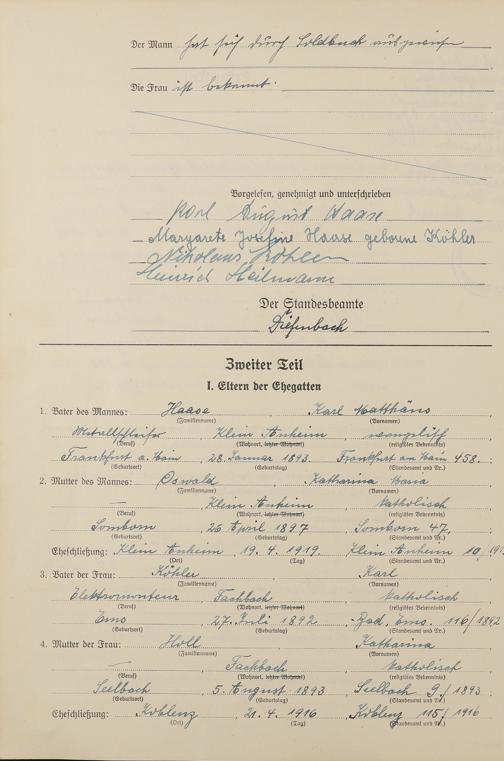 Der Mann hat sich durch Soldbuch ausgewiesen
Die Frau ist bekannt.
Vorgelesen, genehmigt und unterschrieben
Karl August Haase
Margarete Josefine Haase geborene Köhler
Nikolaus Köhler
Heinrich Heilmann
Der Standesbeamte
Diefenbach
Zweiter Teil
I. Eltern der Ehegatten
1. Vater des Mannes: Haase, Karl Matthäus
(Familienname) (Vornamen)
Metallschleifer, Klein Auheim, evangelisch
(Beruf) (Wohnort, letzter Wohnort) (religiöses Bekenntnis)
Frankfurt a. Main, 28. Januar 1893. Frankfurt am Main 458.
(Geburtsort) (Geburtstag) (Standesamt und Nr.)
2. Mutter des Mannes: Oswald, Katharina Maria
(Familienname) (Vornamen)
— Klein Auheim, katholisch
(Beruf) (Wohnort, letzter Wohnort) (religiöses Bekenntnis)
Somborn, 26 April 1897, Somborn 47.
(Geburtsort) (Geburtstag) (Standesamt und Nr.)
Eheschließung: Klein Auheim, 19. 4. 1919. Klein Auheim 10
(Ort) (Tag) (Standesamt und Nr.)
3. Vater der Frau: Köhler, Karl
(Familienname) (Vornamen)
Elektromonteur, Fachbach, katholisch
(Beruf) (Wohnort, letzter Wohnort) (religiöses Bekenntnis)
Ems, 27. Juli 1892, Bad Ems. 116/1892
(Geburtsort) (Geburtstag) (Standesamt und Nr.)
4. Mutter der Frau: Holl, Katharina
(Familienname) (Vornamen)
— Fachbach, katholisch
(Beruf) (Wohnort, letzter Wohnort) (religiöses Bekenntnis)
Seelbach, 5. August 1893, Seelbach 9/1893;
(Geburtsort) (Geburtstag) (Standesamt und Nr.)
Eheschließung: Koblenz, 21. 4. 1916, Koblenz 115/1916
(Ort) (Tag) (Standesamt und Nr.)